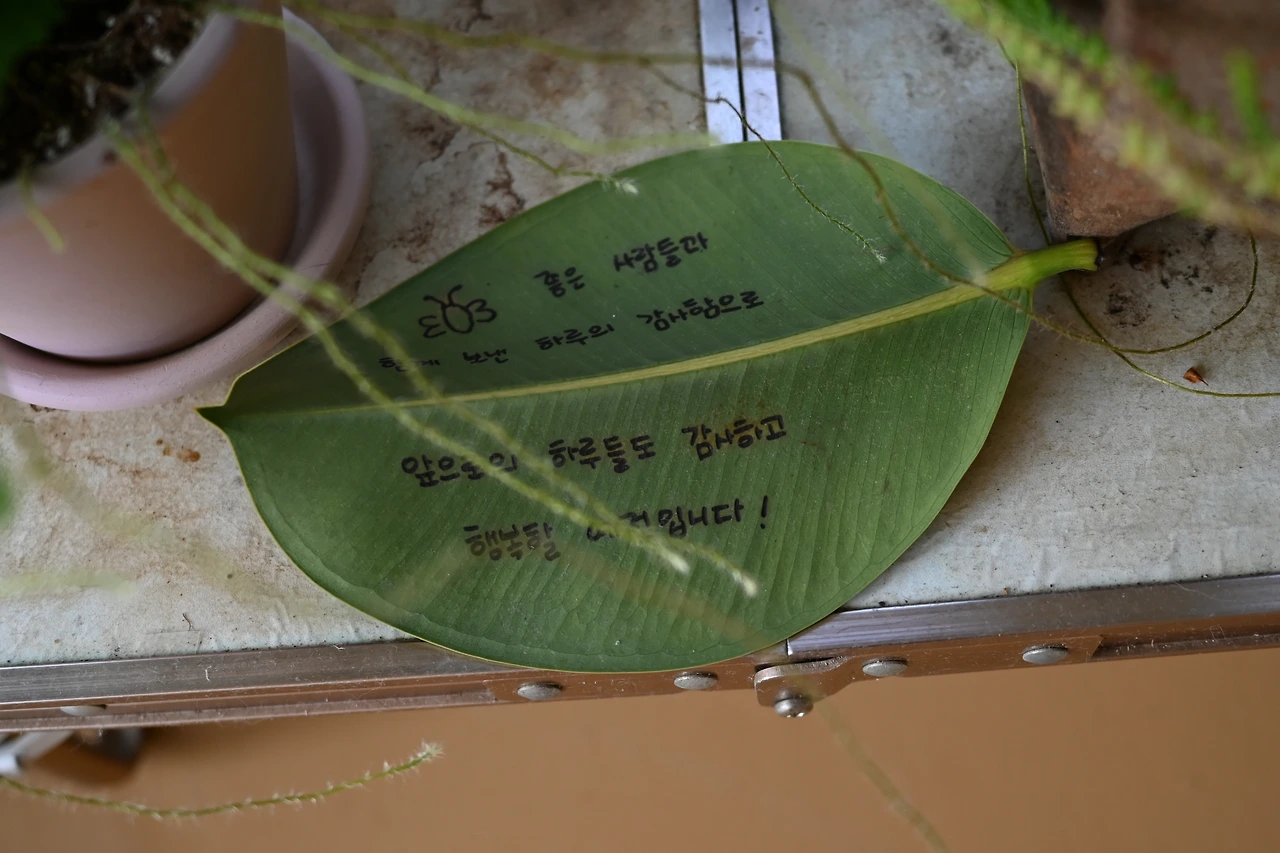 좋은 사람들과
함께 보낸 하루의 감사함으로
앞으로의 하루들도 감사하고
행복할 입니다!